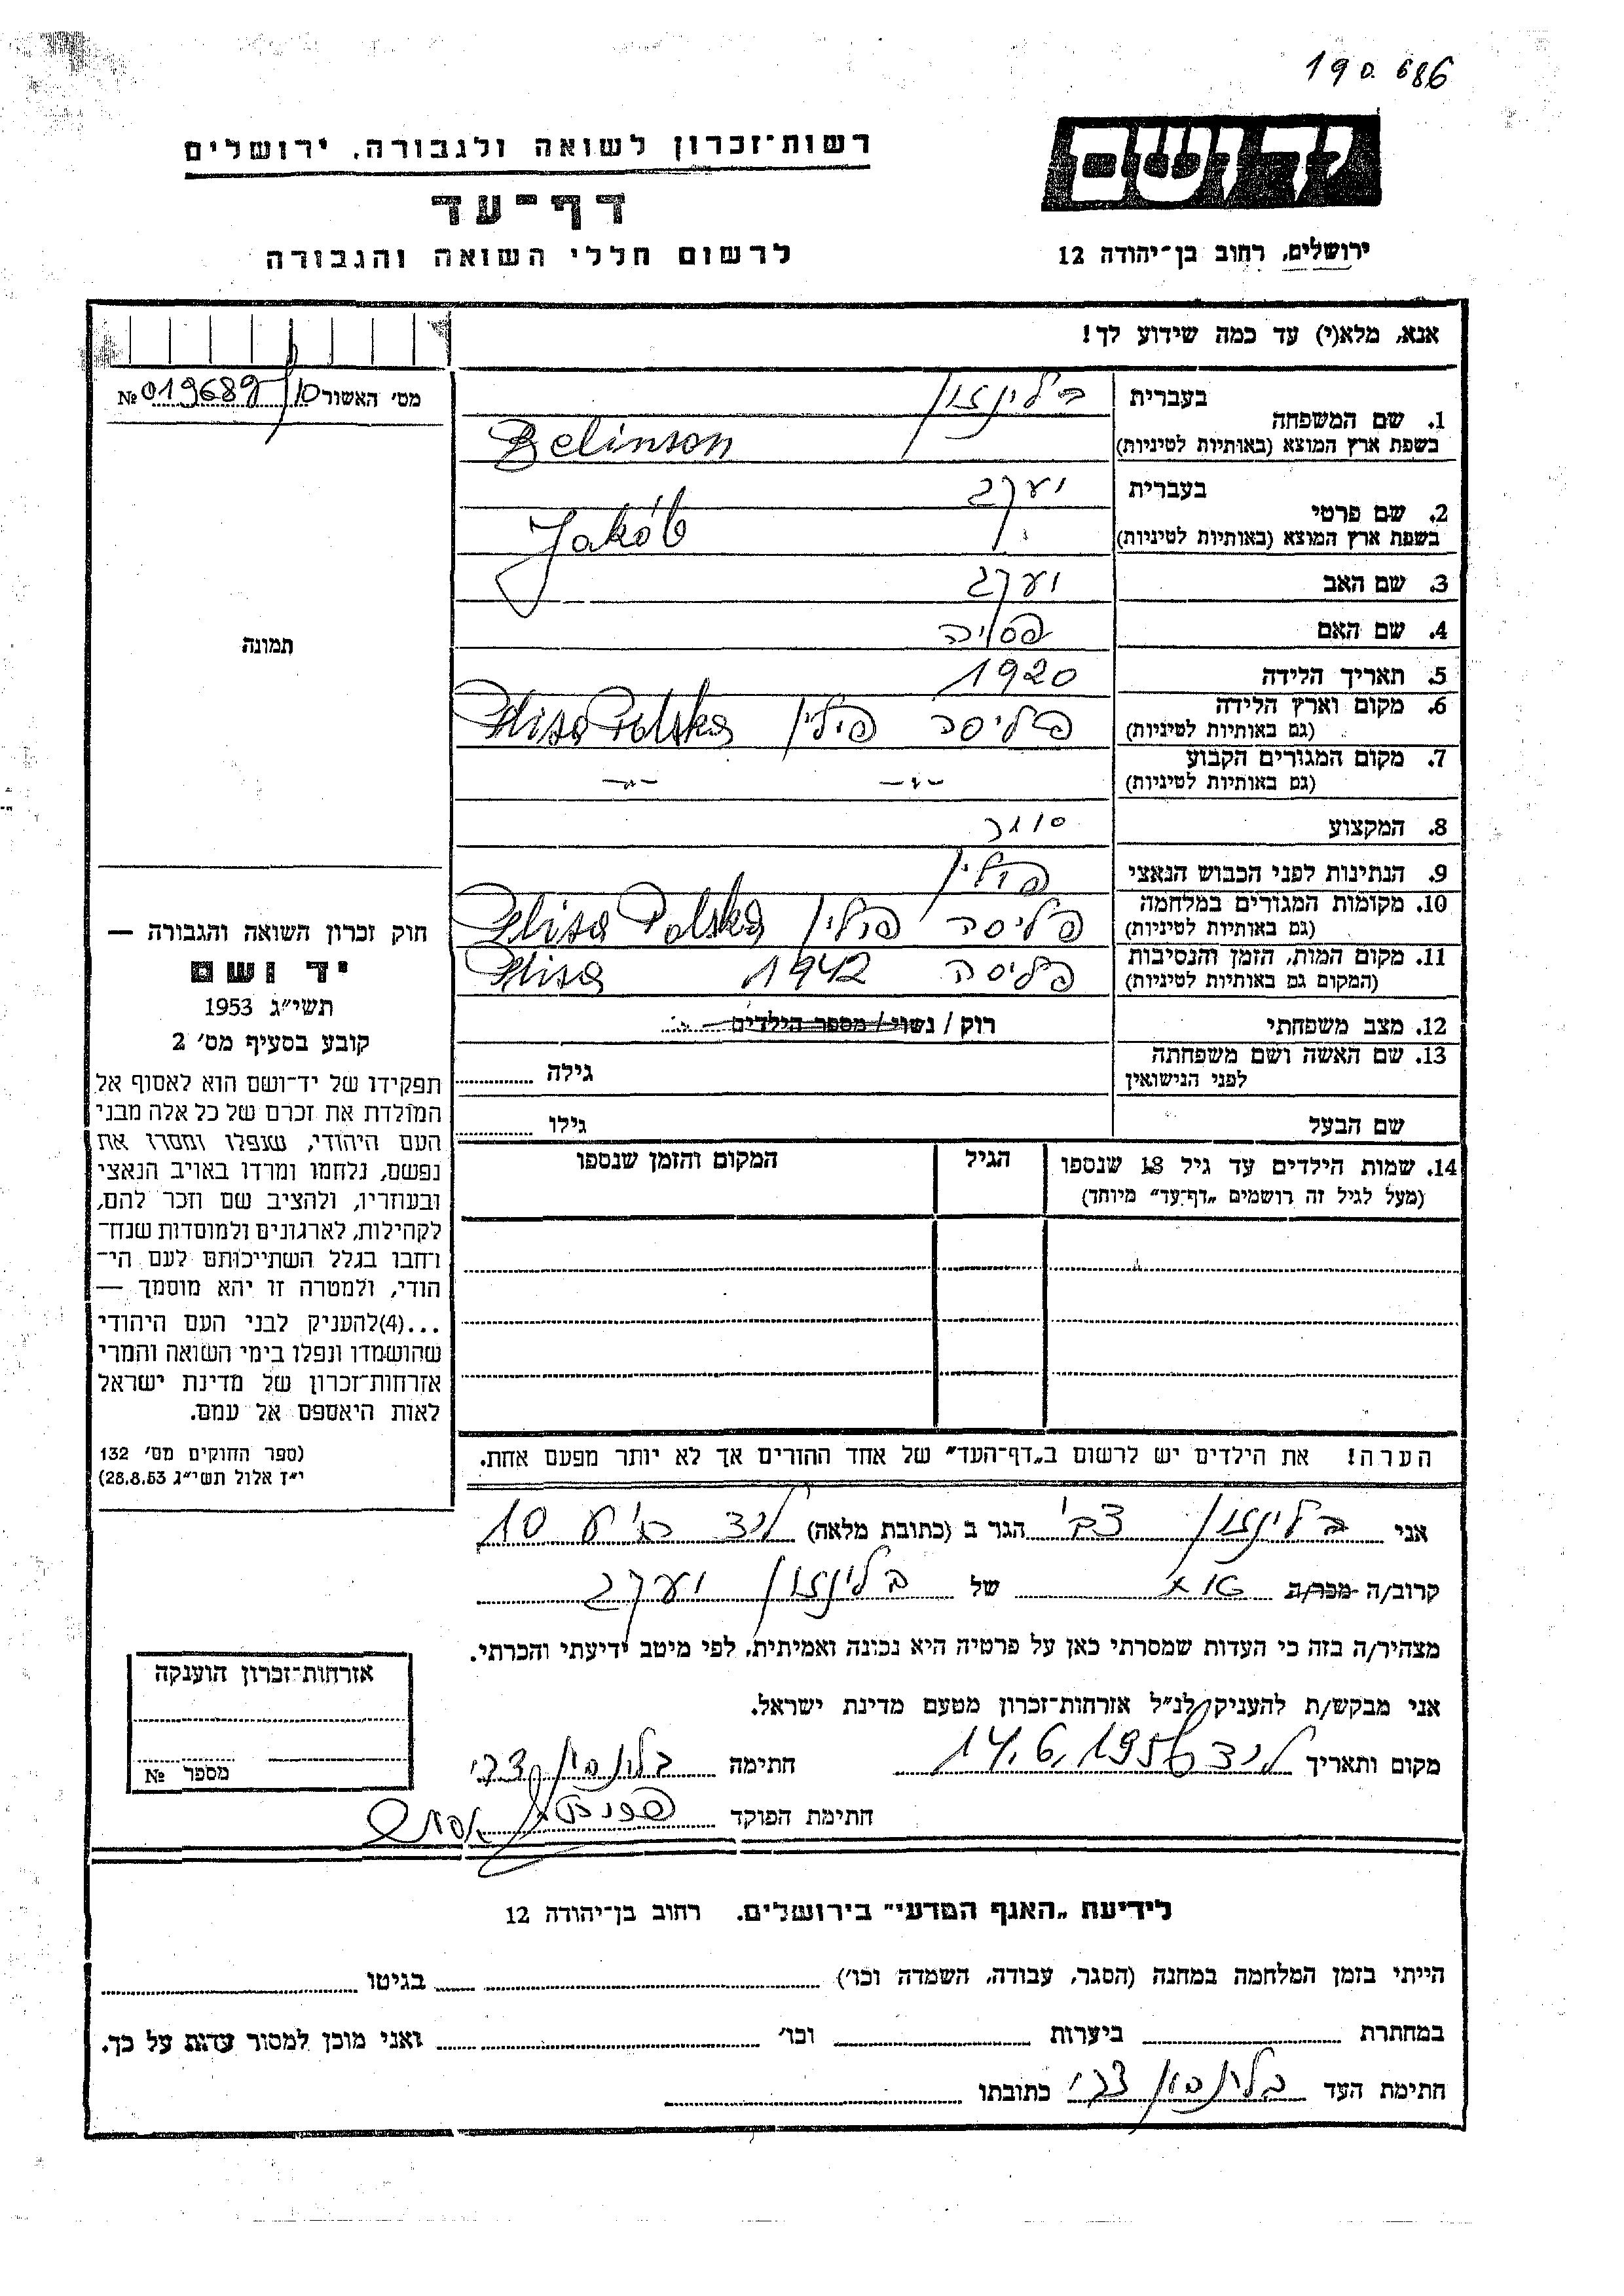 190.686
יד ושם
רשות־זכרון לשואה ולגבורה, ירושלים
דף־עד
לרשום חללי השואה והגבורה
ירושלים, רחוב בן־יהודה 12
אנא, מלא(י) עד כמה שידוע לך!
מס׳ האשור 10/ 019689 №
תמונה
חוק זכרון השואה והגבורה —
יד ושם
תשי״ג 1953
קובע בסעיף מס׳ 2
תפקידו של יד־ושם הוא לאסוף אל
המולדת את זכרם של כל אלה מבני
העם היהודי, שנפלו ומסרו את
נפשם, נלחמו ומרדו באויב הנאצי
ובעוזריו, ולהציב שם וזכר להם,
לקהילות, לארגונים ולמוסדות שנח־
רחבו בגלל השתייכותם לעם הי־
הודי, ולמטרה זו יהא מוסמך —
...(4)להעניק לבני העם היהודי
שהושמדו ונפלו בימי השואה והמרי
אזרחות־זכרון של מדינת ישראל
לאות היאספם אל עמם.
(ספר החוקים מס׳ 132
י״ז אלול תשי״ג 28.8.53)
1. שם המשפחה בעברית בלינזון
בשפת ארץ המוצא (באותיות לטיניות) Belinson
2. שם פרטי בעברית יעקב
בשפת ארץ המוצא (באותיות לטיניות) Jakób
3. שם האב יעקב
4. שם האם פסיה
5. תאריך הלידה 1920
6. מקום וארץ הלידה
(גם באותיות לטיניות) פליסה פולין Plisa Polska
7. מקום המגורים הקבוע
(גם באותיות לטיניות) —״— —״—
8. המקצוע סוחר
9. הנתינות לפני הכבוש הנאצי פולין
10. מקומות המגורים במלחמה
(גם באותיות לטיניות) פליסה פולין Plisa Polska
11. מקום המות, הזמן והנסיבות
(המקום גם באותיות לטיניות) פליסה 1942 Plisa
12. מצב משפחתי רוק / נשוי / מספר הילדים
13. שם האשה ושם משפחתה
לפני הנישואין גילה
שם הבעל גילו
14. שמות הילדים עד גיל 18 שנספו הגיל המקום והזמן שנספו
(מעל לגיל זה רושמים „דף־עד״ מיוחד)
הערה! את הילדים יש לרשום ב„דף־העד״ של אחד ההורים אך לא יותר מפעם אחת.
אני בלינזון צבי הגר ב (כתובת מלאה) לוד 10
קרוב/ה מכר/ה של בלינזון יעקב
מצהיר/ה בזה כי העדות שמסרתי כאן על פרטיה היא נכונה ואמיתית, לפי מיטב ידיעתי והכרתי.
אני מבקש/ת להעניק לנ״ל אזרחות־זכרון מטעם מדינת ישראל.
מקום ותאריך לוד 14.6.1956 חתימה בלינזון צבי
חתימת הפוקד
אזרחות־זכרון הוענקה
מספר №
לידיעת „האגף המדעי״ בירושלים. רחוב בן־יהודה 12
הייתי בזמן המלחמה במחנה (הסגר, עבודה, השמדה וכו׳) בגיטו
במחתרת ביערות וכו׳ ואני מוכן למסור עדות על כך.
חתימת העד בלינזון צבי כתובתו